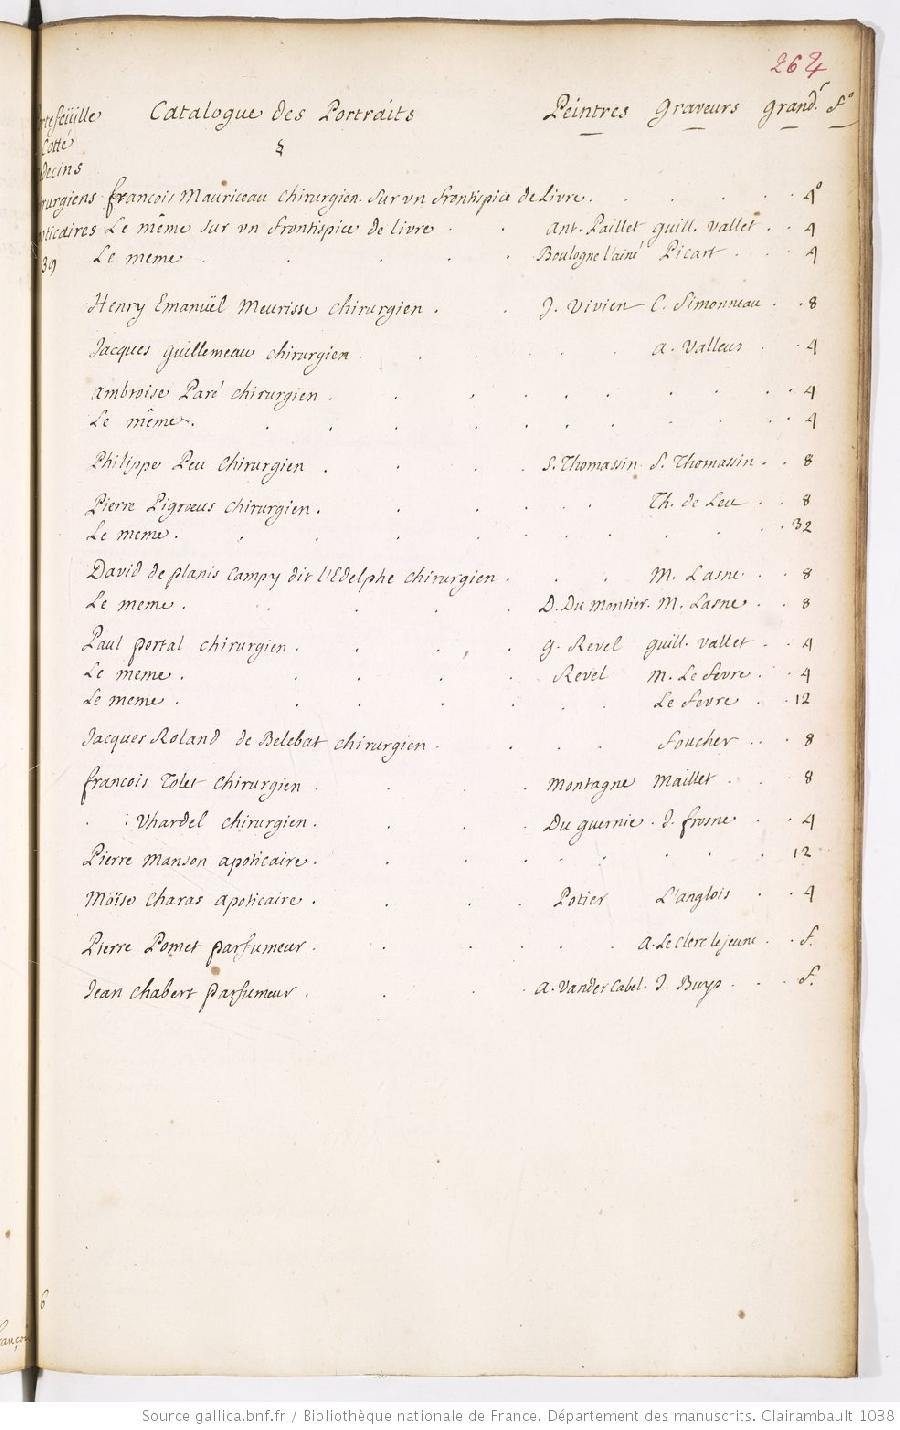 264
Catalogue des Portraits Peintres Graveurs Grandr. fo
Cotté
François Mauriceau chirurgien sur un frontispice de Livre. 4o
Le même sur un frontispice de livre Ant. Paillet Guill. Vallet 4
39 Le meme Boulogne l'ainé Picart 4
Henry Emanuël Meurisse chirurgien J. Vivien C. Simonneau 8
Jacques Guillemeau chirurgien A. Valleus 4
Ambroise Paré chirurgien 4
Le même 4
Philippe Peu chirurgien S. Thomassin S. Thomassin 8
Pierre Pigræus chirurgien Th. de Leu 8
Le meme 32
David de planis Campy dit l'Edelphe chirurgien M. Lasne 8
Le meme D. Du montier M. Lasne 8
Paul portal chirurgien G. Revel Guill. Vallet 4
Le meme Revel M. Le Fevre 4
Le meme Le Fevre 12
Jacques Roland de Belebat chirurgien Foucher 8
François Tolet chirurgien Montagne Maillet 8
Vhardel chirurgien Du guernie J. frosne 4
Pierre Manson apoticaire 12
Moïse Charas apoticaire Potier L'anglois 4
Pierre Pomet parfumeur A. Le Clerc le jeune f.
Jean Chabert parfumeur A. Vander Cabel J. Buys f.
6
Source gallica.bnf.fr / Bibliothèque nationale de France. Département des manuscrits. Clairambault 1038